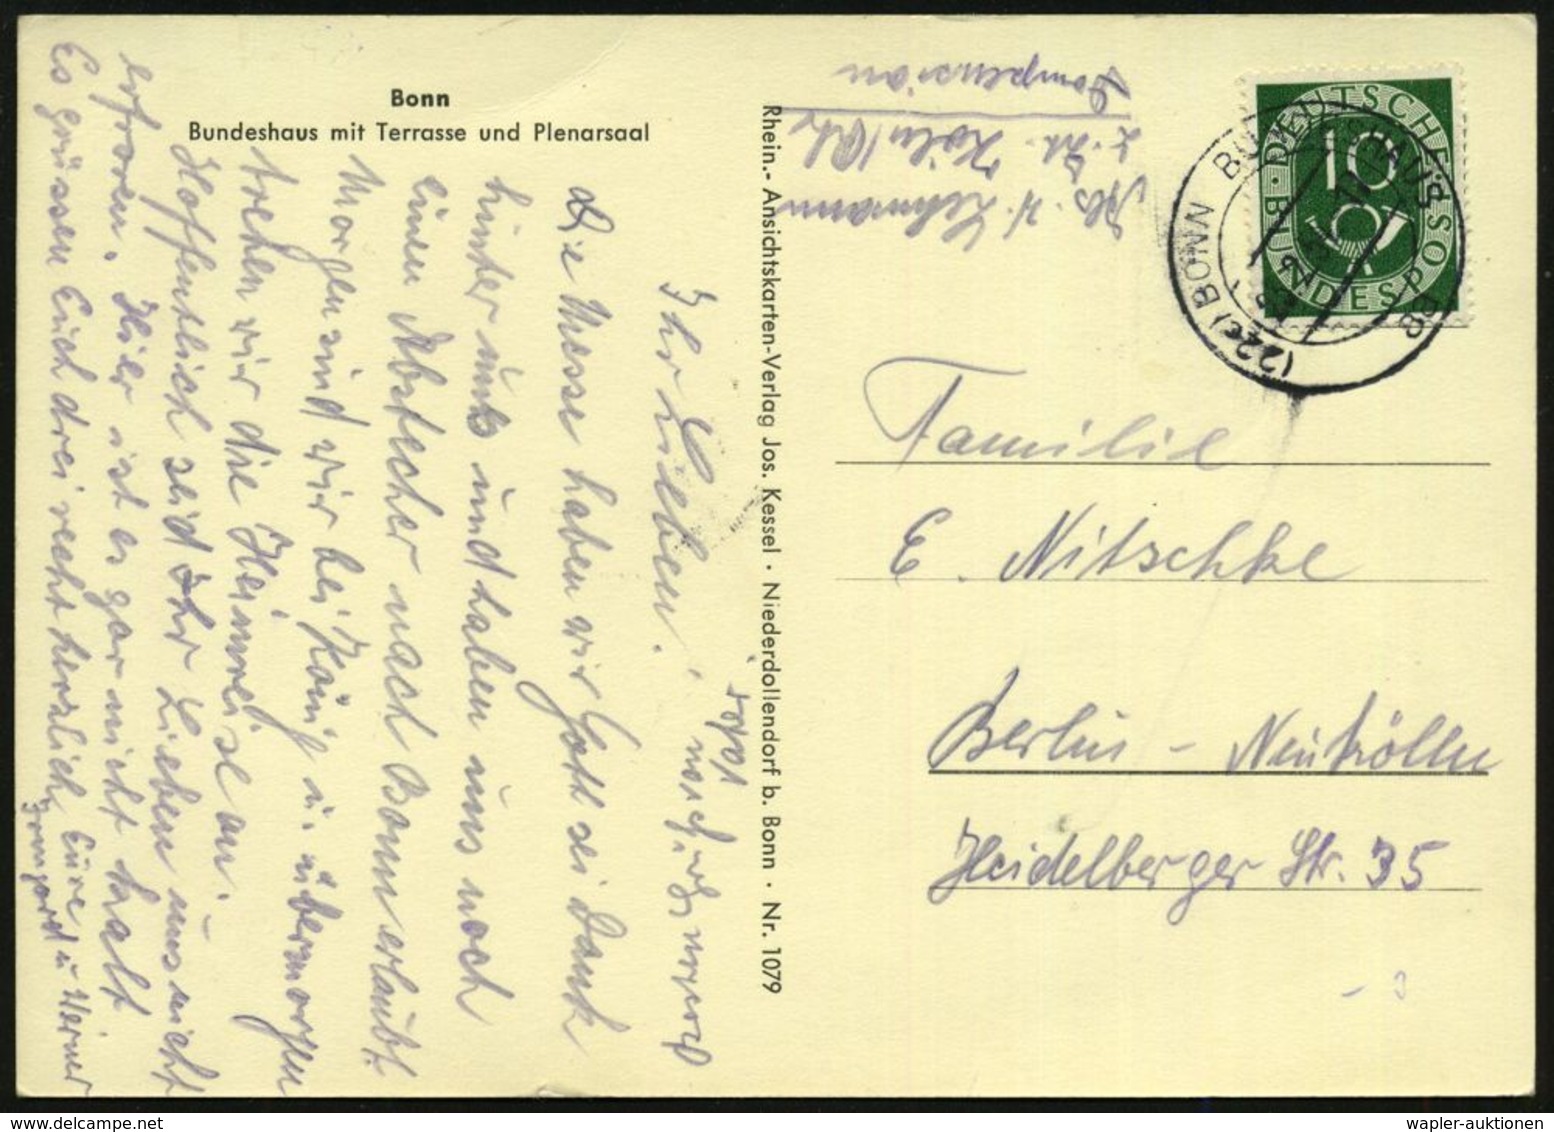 Bonn
Bundeshaus mit Terrasse und Plenarsaal
Rhein.- Ansichtskarten-Verlag Jos. Kessel • Niederdollendorf b. Bonn • Nr. 1079
Abs. H. Lehmann
z. Zt. Köln/Rh
Ihr Lieben!
Die Messe haben wir Gott sei Dank
hinter uns und haben uns noch
einen Abstecher nach Bonn erlaubt.
Morgen sind wir bei König u. übermorgen
treten wir die Heimreise an.
Hoffentlich seid Ihr Lieben uns nicht
erfroren. Hier ist es gar nicht kalt
Es grüssen Euch drei recht herzlich Eure
Irmgard u. Werner
DEUTSCHE BUNDESPOST
10
(22c) BONN BUNDESHAUS
Familie
E. Nitschke
Berlin - Neukölln
Heidelberger Str. 35
wapler-auktionen